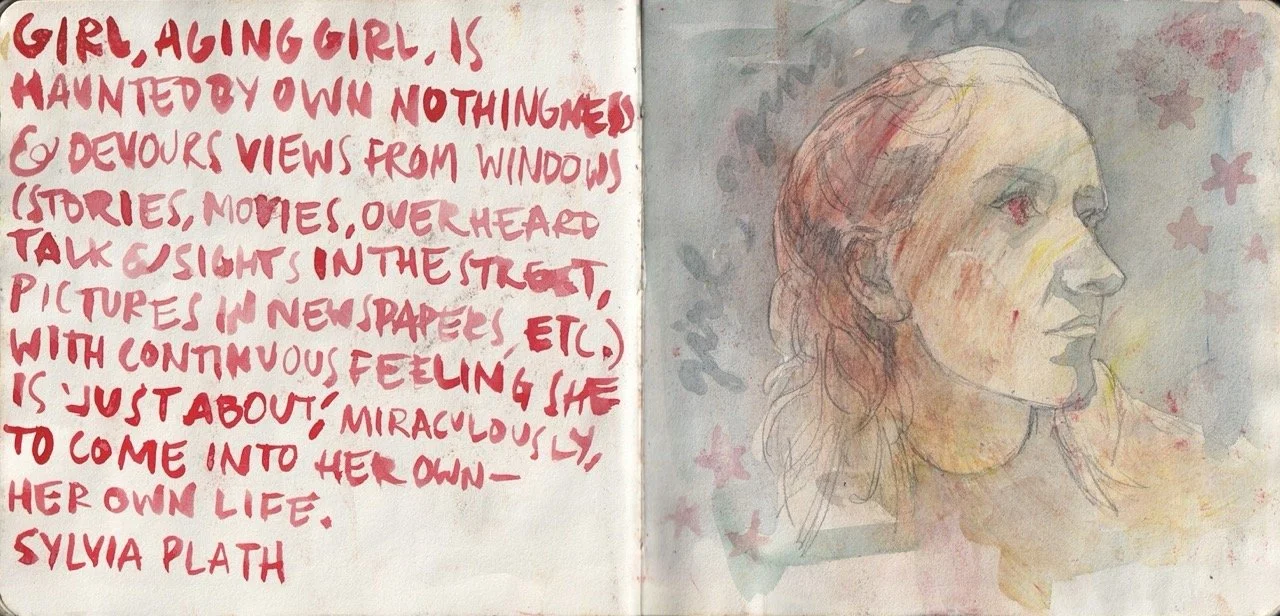 GIRL, AGING GIRL, IS
HAUNTED BY OWN NOTHINGNESS
& DEVOURS VIEWS FROM WINDOWS
(STORIES, MOVIES, OVERHEARD
TALK & SIGHTS IN THE STREET,
PICTURES IN NEWSPAPERS, ETC.)
WITH CONTINUOUS FEELING SHE
IS 'JUST ABOUT,' MIRACULOUSLY,
TO COME INTO HER OWN—
HER OWN LIFE.
SYLVIA PLATH
girl aging girl